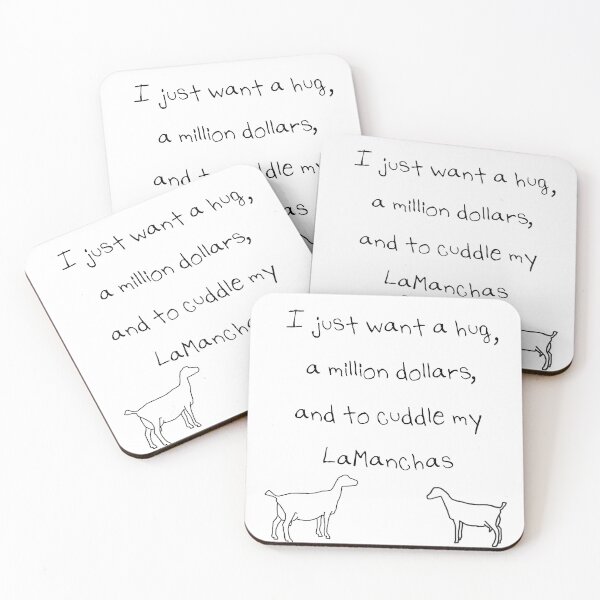 I just want a hug,
a million dollars,
and to cuddle my
as
I just want a hug,
a million dollars,
and to cuddle my
LaManchas
I just want a hug,
a million dollars,
and to cuddle my
LaMancha
I just want a hug,
a million dollars,
and to cuddle my
LaManchas